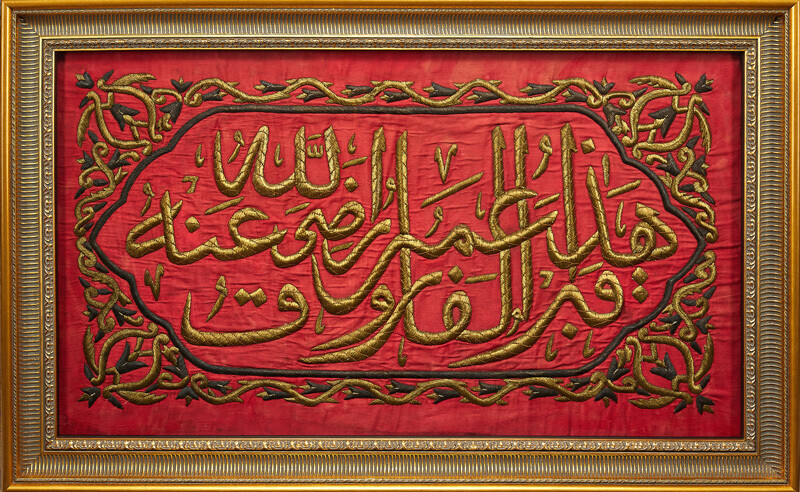 هذا قبر الفاروق عمر رضى الله عنه